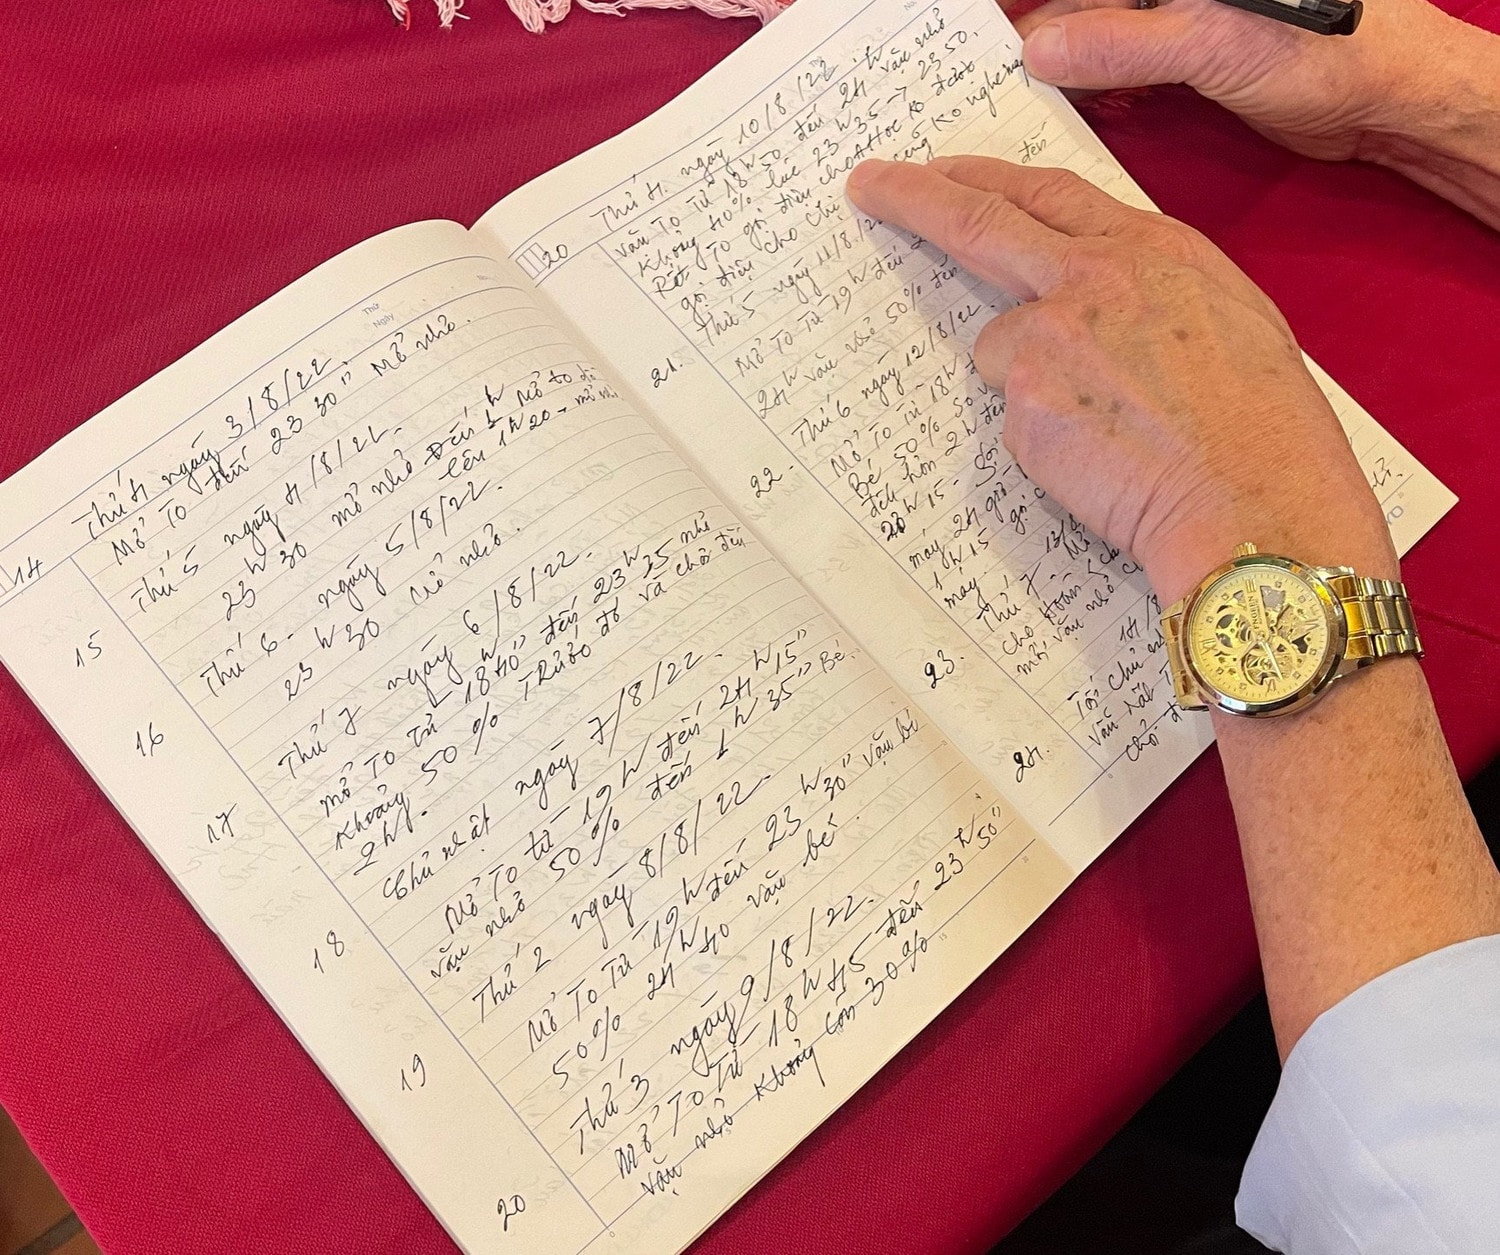 Thứ
Ngày
14 Thứ 4 ngày 3/8/22.
Mở To đến 23 30" Mở nhỏ.
15 Thứ 5 ngày 4/8/22.
23 h 30 mở nhỏ Đến 1 h Mở to
lên 1h20 → mở
16 Thứ 6 - ngày 5/8/22.
23 h 30 nhỏ.
17 Thứ 7 ngày 6/8/22.
mở To Từ 18 40" đến 23h 35 nhỏ
Khoảng 50% trước đó và chờ đến
2h.
18 Chủ nhật ngày 7/8/22.
Mở To từ 19h đến 24h15"
vặn nhỏ 50% đến 1h35" Bé.
19 Thứ 2 ngày 8/8/22.
Mở To Từ 19h đến 23h30" vặn bé
50% 24h40 vặn bé.
20 Thứ 3 ngày 9/8/22.
Mở To Từ 18h45 đến 23h50"
vặn nhỏ Khoảng còn 30%
20 Thứ 4. ngày 10/8/22.
Vặn To Từ 18h50 đến 24h vặn nhỏ
Khoảng 40% lúc 23h35 → 23 50.
Rét To gọi điện cho Học ko được
gọi điện cho chị cũng ko nghe máy
21. Thứ 5 ngày 11/8/22 đến
Mở To Từ 19h đến
24h vặn nhỏ 50% đến
22. Thứ 6 ngày 12/8/22.
Mở To Từ 18h
Bé 50%
đến hơn 2h đến
h 15 -
máy 24 giờ
1h15 gọi
máy.
23. Thứ 7 - 13/8
cho Hoàn
mới vặn nhỏ
24. Tối chủ nhật 14/8
Vặn
chờ
PINGREEN